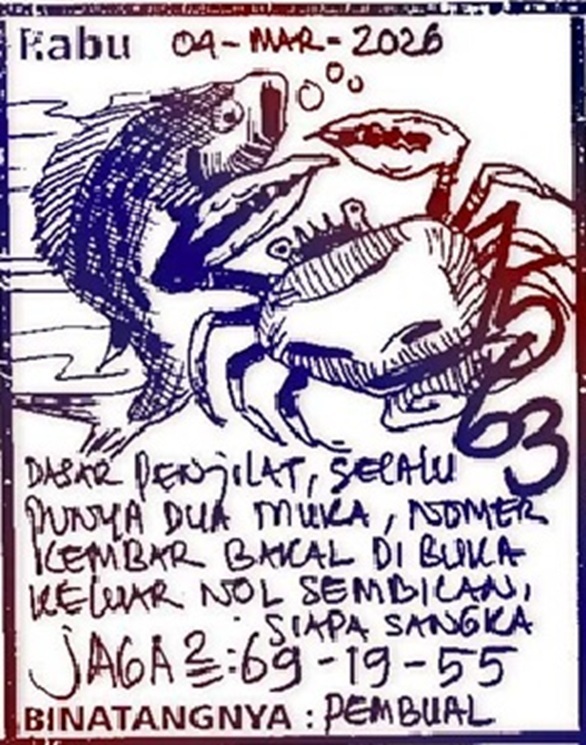 Rabu 04-MAR-2026
7563
DASAR PENJILAT, SELALU
PUNYA DUA MUKA, NOMER
KEMBAR BAKAL DI BUKA
KELUAR NOL SEMBILAN,
SIAPA SANGKA
JAGA2:69-19-55
BINATANGNYA : PEMBUAL